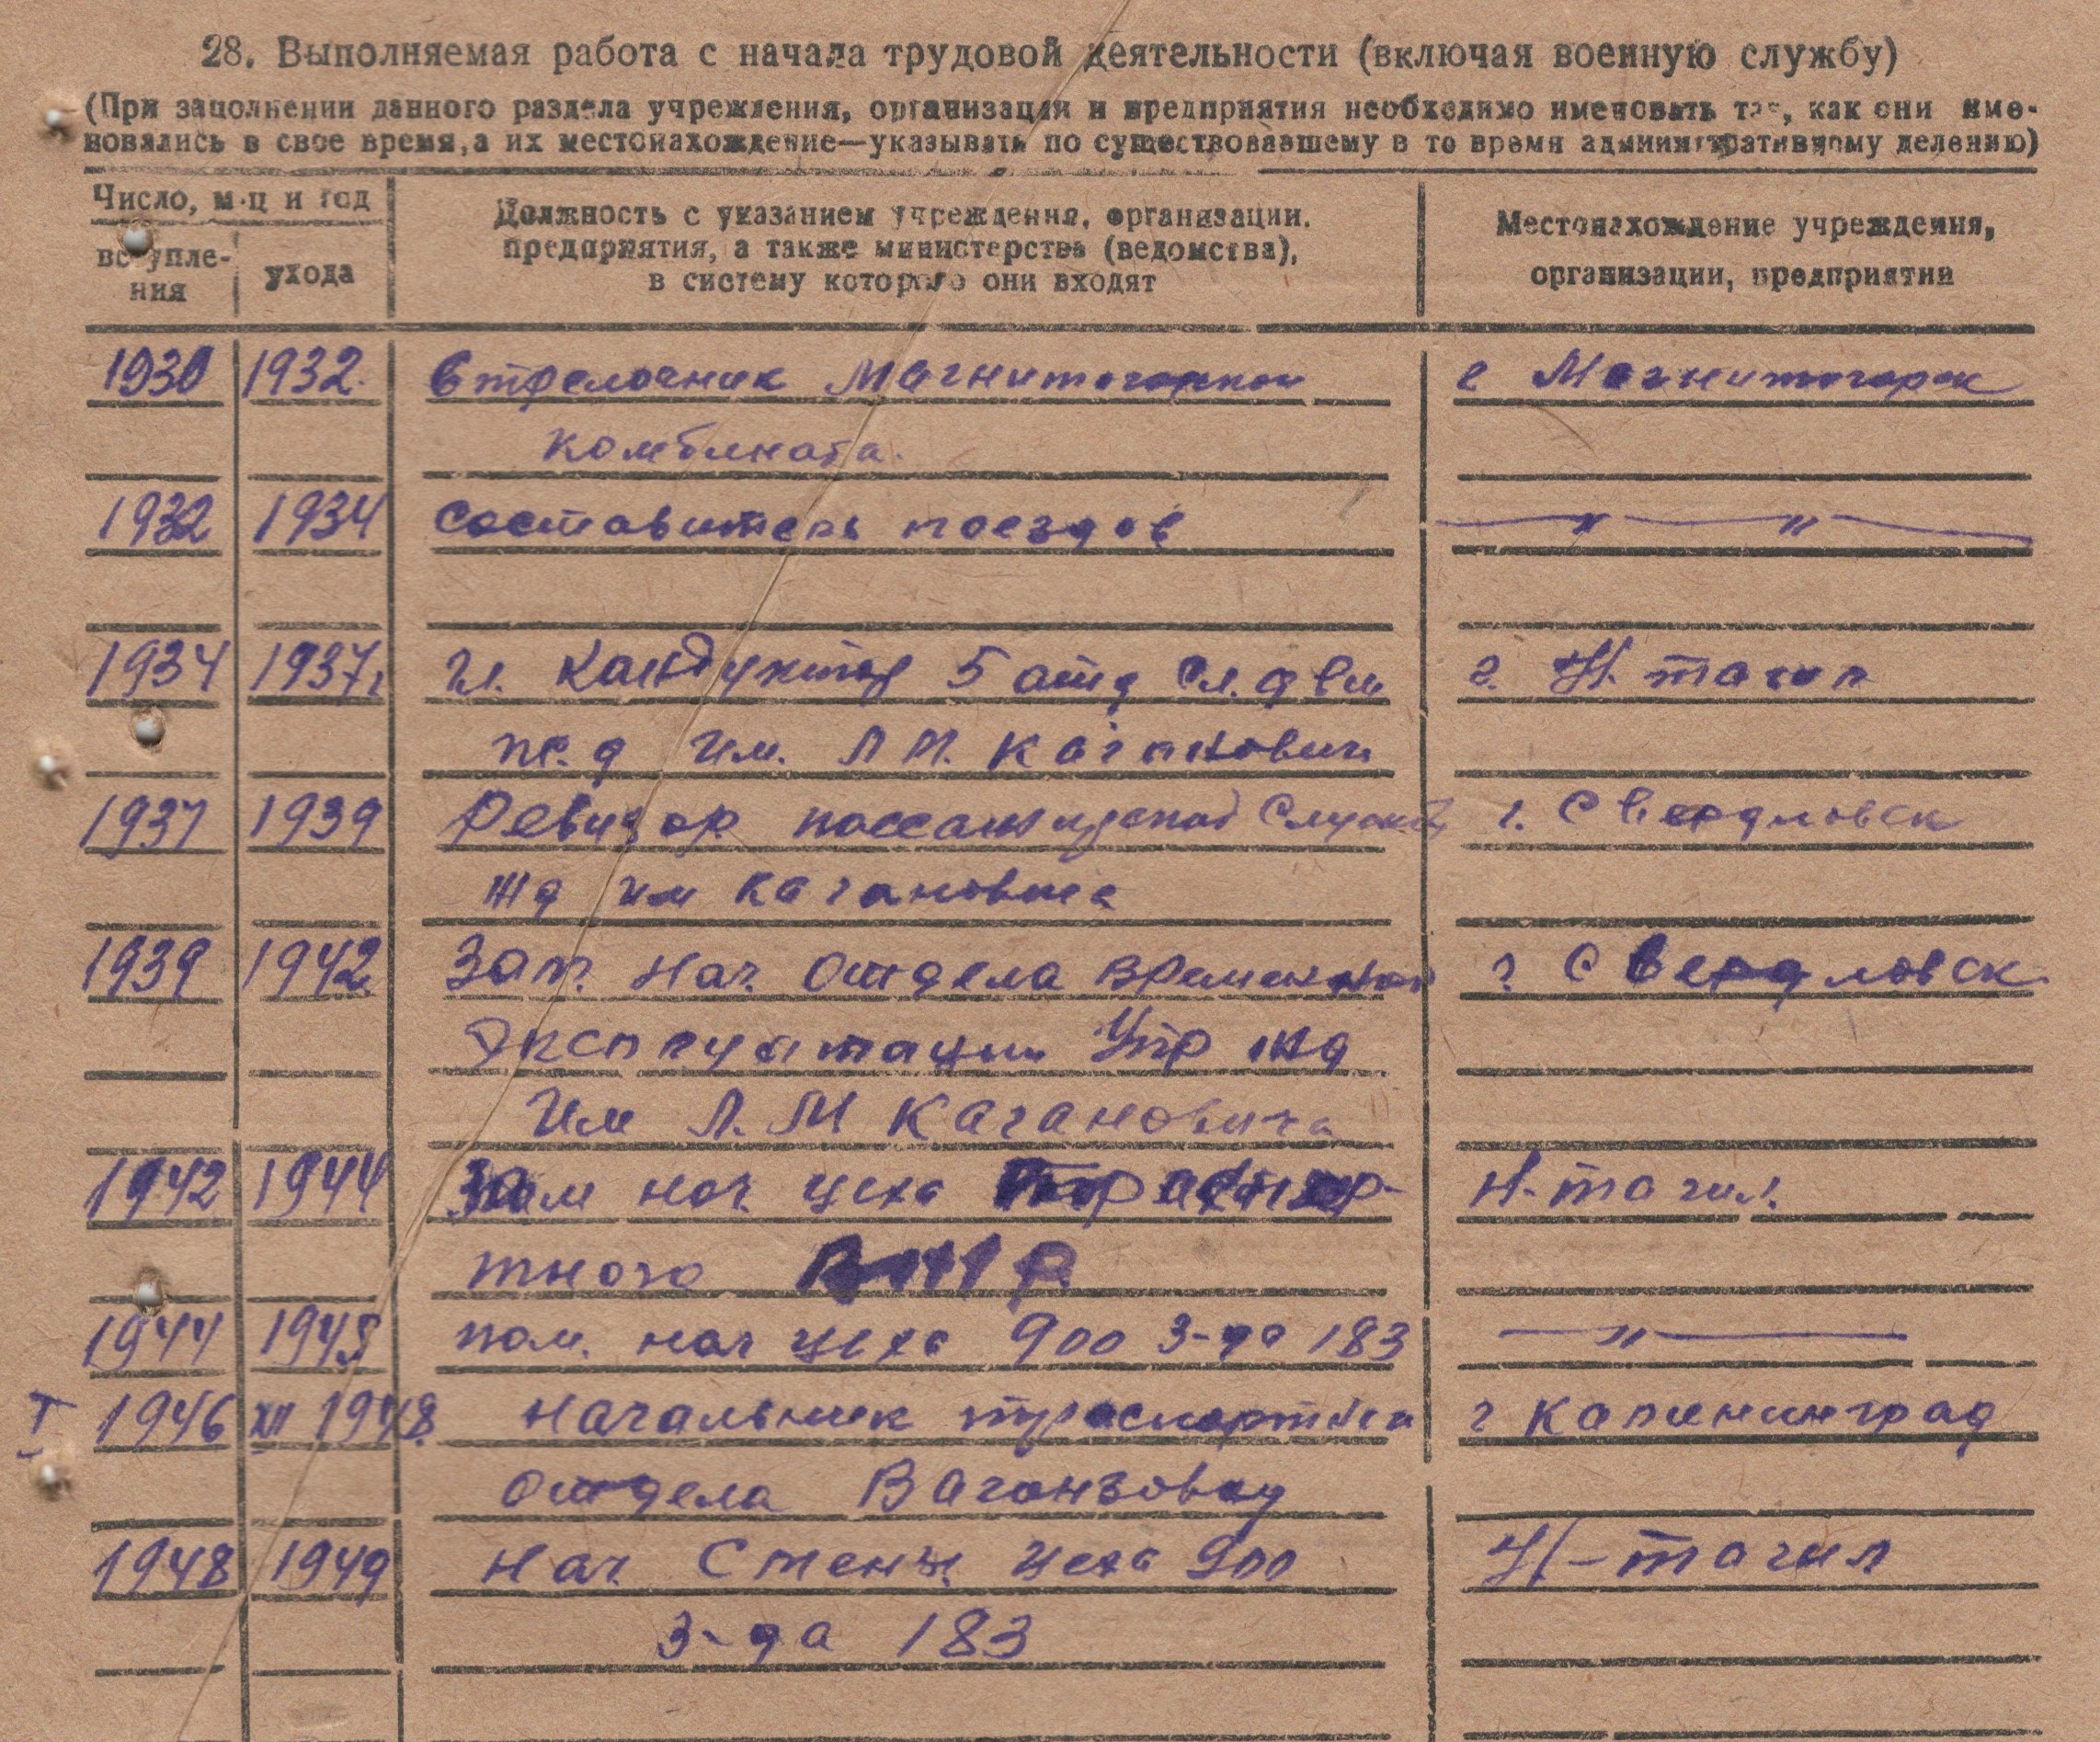 28. Выполняемая работа с начала трудовой деятельности (включая военную службу)
(При заполнении данного раздела учреждения, организации и предприятия необходимо именовать так, как они име-
новались в свое время, а их местонахождение—указывать по существовавшему в то время административному делению)
Число, м-ц и год
вступле-
ния
ухода
Должность с указанием учреждения, организации,
предприятия, а также министерства (ведомства),
в систему которого они входят
Местонахождение учреждения,
организации, предприятия
1930 1932. Стрелочник Магнитогорского г Магнитогорск
комбината.
1932 1934 Составитель поездов —"—"—
1934 1937г Гл. Кандуктор 5 отд Сл. дви г. Н. тагил
ж. д им. Л М. Каганович
1937 1939 Ревизор пассажирской Службы г. Свердловск
жд им Кагановича
1939 1942 Зам. Нач. Отдела временной г Свердловск
Эксплуатации Упр жд
Им Л. М Кагановича
1942 1944 Зам нач. цеха Н-тагил.
тного
1944 1945 пом. нач цеха 900 З-да 183 —"—
I 1946 XII 1948 Начальник траспортного г Калининград
отдела Вагонзовод
1948 1949 Нач. Станц. цеха 900 Н-тагил
З-да 183